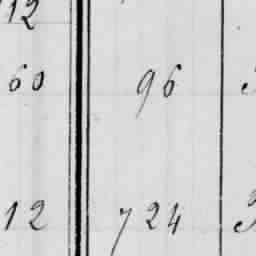 12
60 96
12 724